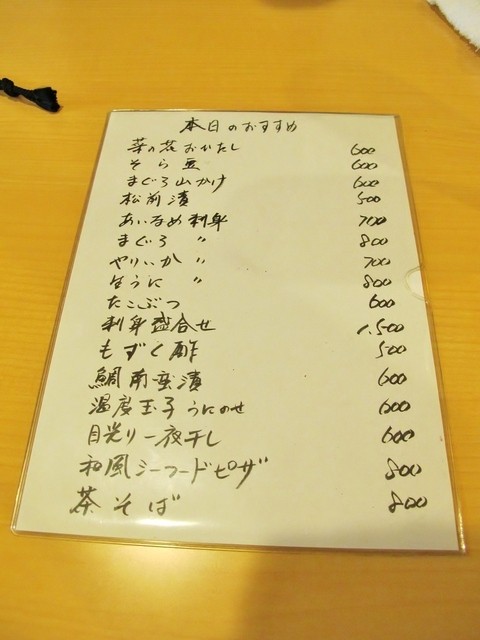 本日のおすすめ
菜の花おひたし 600
そら豆 600
まぐろ山かけ 600
松前漬 500
あいなめ刺身 700
まぐろ 〃 800
やりいか 〃 700
生うに 〃 800
たこぶつ 600
刺身盛合せ 1,500
もずく酢 500
鯛南蛮漬 600
温度玉子うにのせ 600
目光り一夜干し 600
和風シーフードピザ 800
茶そば 800